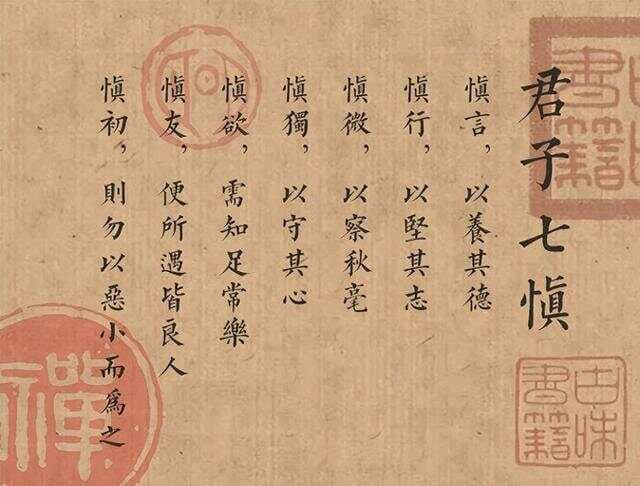 君子七慎
慎言，以養其德
慎行，以堅其志
慎微，以察秋毫
慎獨，以守其心
慎欲，需知足常樂
慎友，便所遇皆良人
慎初，則勿以惡小而為之
古味
書籍
古味
書籍
禪